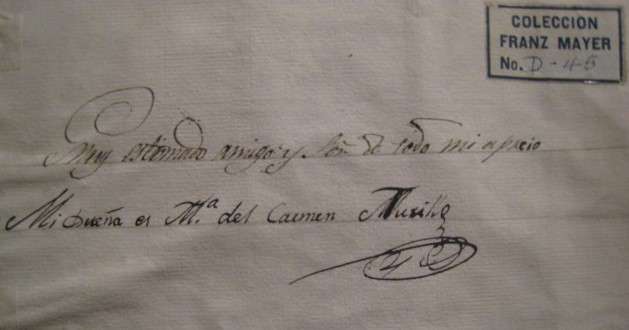 COLECCION
FRANZ MAYER
No. D-45
Muy estimado amigo y Sor. de todo mi aprecio
Mi Dueña es Mª del Carmen Murillo